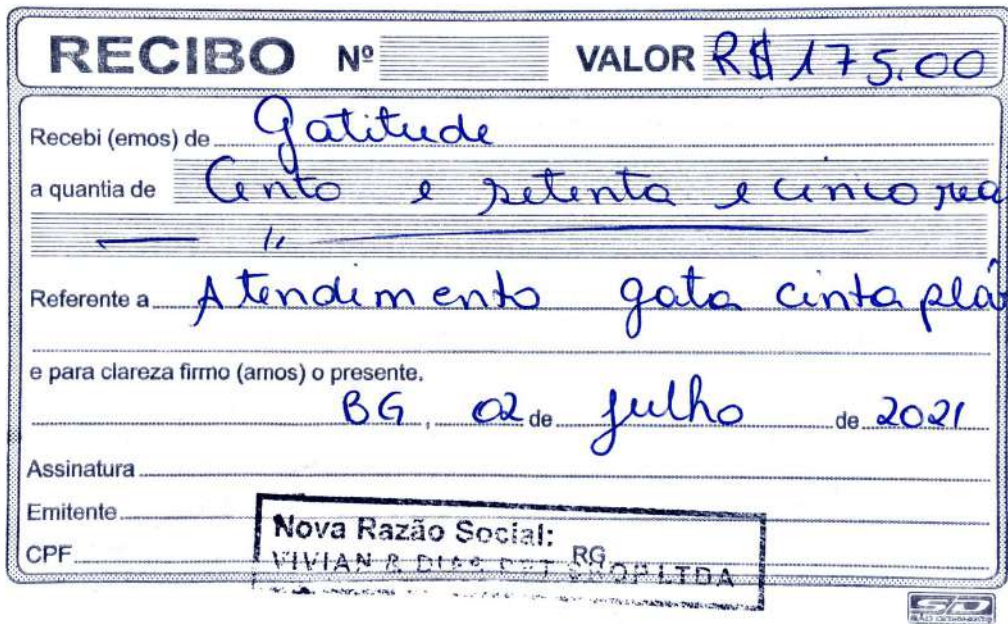 RECIBO Nº VALOR R$ 175,00
Recebi (emos) de Gatitude
a quantia de Cento e setenta e cinco rea
Referente a Atendimento gata cinta plá
e para clareza firmo (amos) o presente.
BG, 02 de julho de 2021
Assinatura
Emitente
Nova Razão Social:
CPF RG
VIVIAN R DIAS PET SHOP LTDA
SD